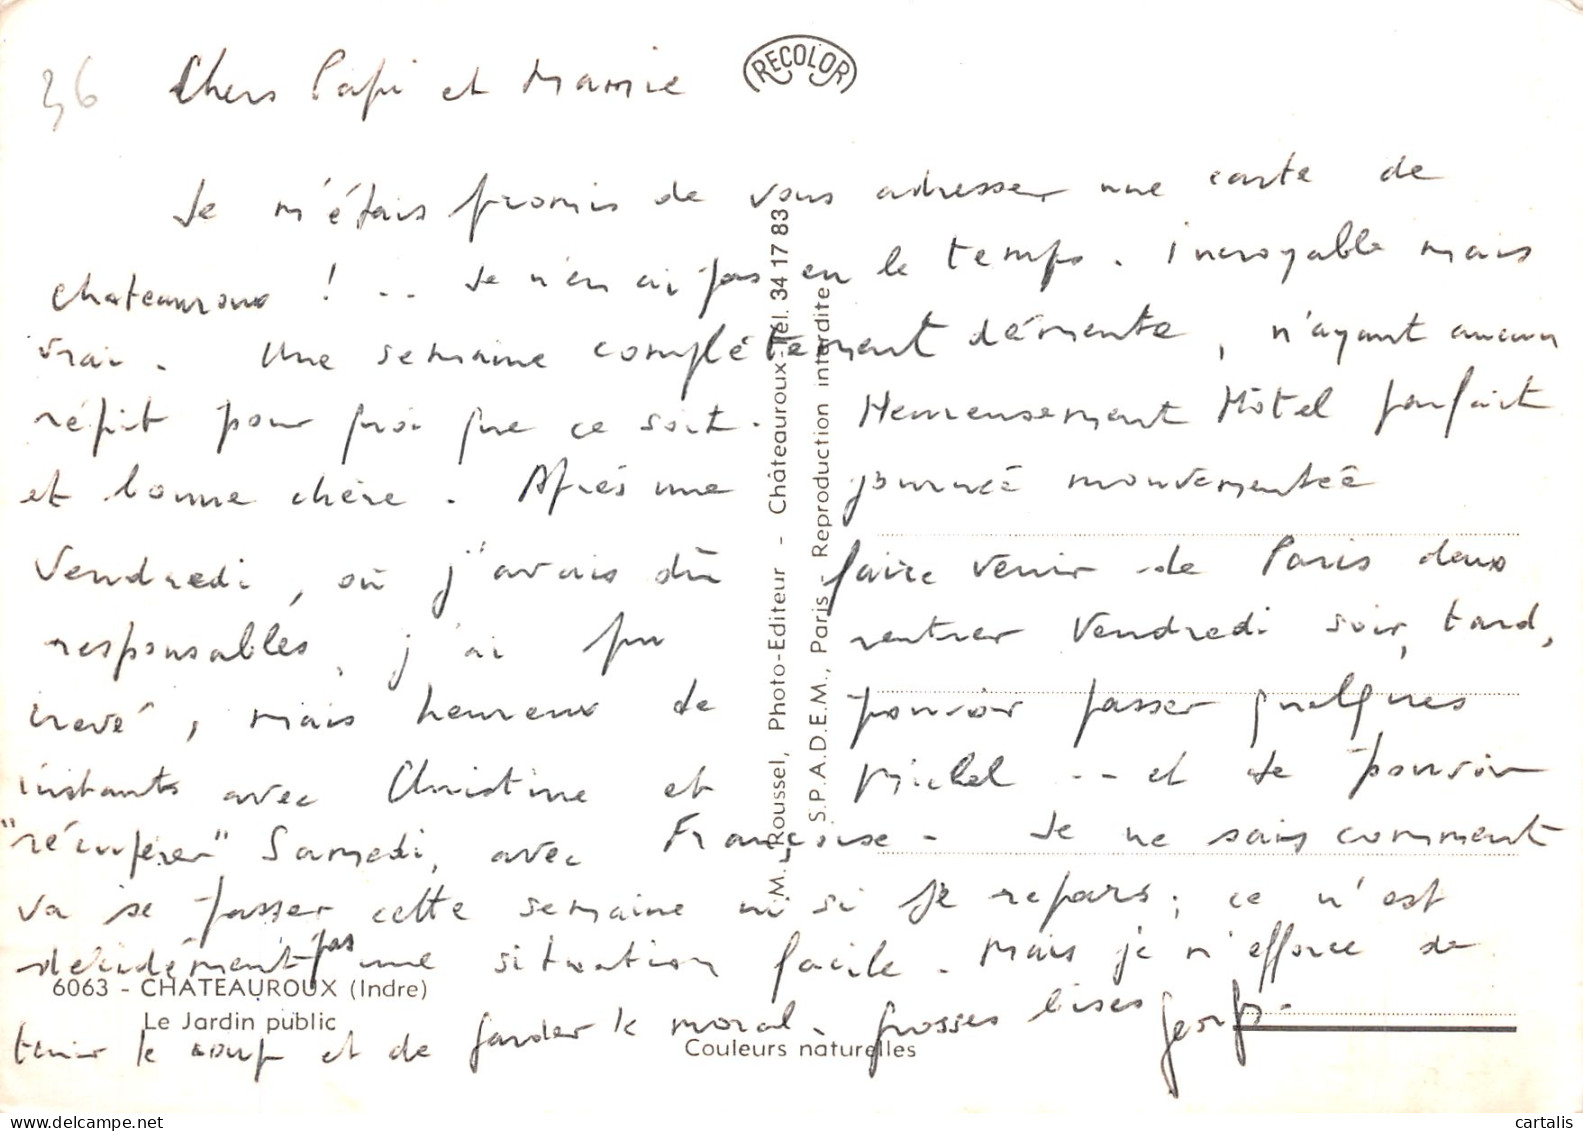 36
Chers Papi et Mamie
RECOLOR
Je m'étais promis de vous adresser une carte de
chateauroux ! .. Je n'en ai pas eu le temps. Incroyable mais
vrai. Une semaine complètement démente, n'ayant aucun
répit pour quoi que ce soit. Heureusement Hôtel parfait
et bonne chère. Après une journée mouvementée
Vendredi, où j'avais dû faire venir de Paris deux
responsables, j'ai pu rentrer Vendredi soir, tard,
crevé, mais heureux de pouvoir passer quelques
instants avec Christine et Michel -- et de pouvoir
"récupérer" Samedi, avec Françoise. Je ne sais comment
va se passer cette semaine ni si je repars ; ce n'est
décidément pas une situation facile. Mais je m'efforce de
tenir le coup et de garder le moral. grosses bises
M. Roussel, Photo-Editeur - Châteauroux-Tél. 34 17 83
S.P.A.D.E.M., Paris. Reproduction interdite
6063 - CHATEAUROUX (Indre)
Le Jardin public
Couleurs naturelles
www.delcampe.net
cartalis